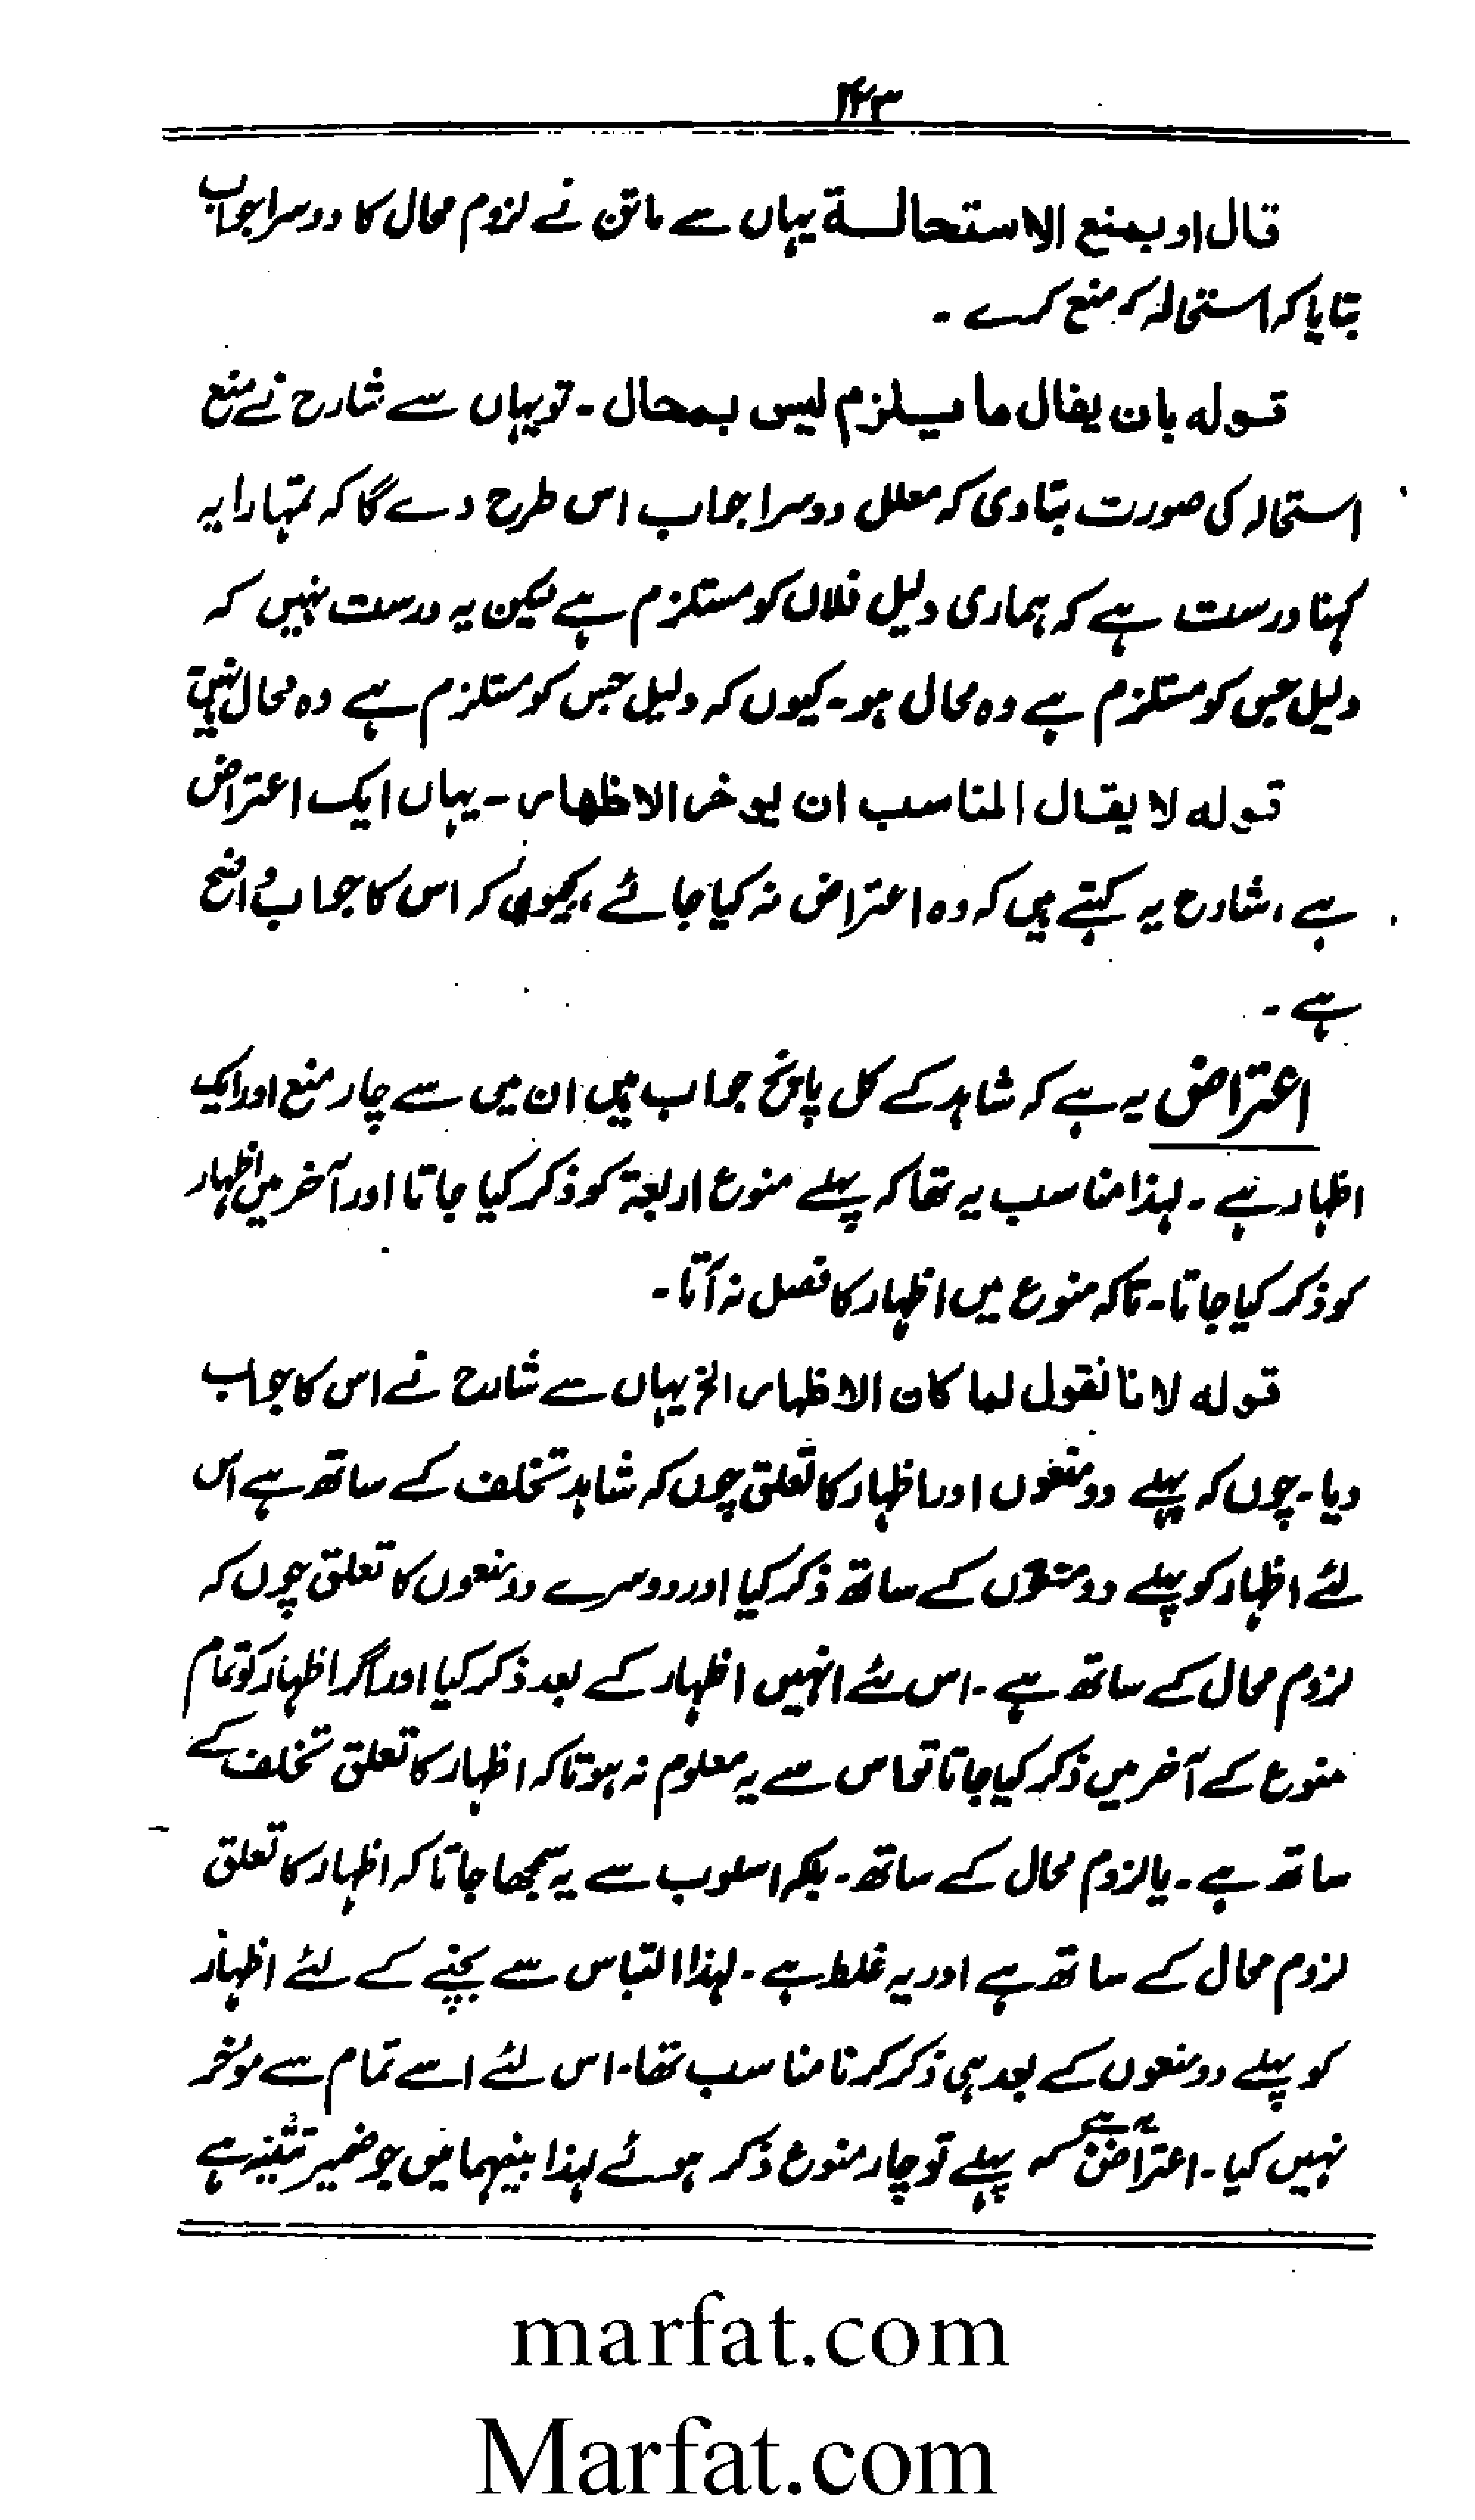 ۱۴۳
قال او بمنع الاستحالة یہاں سے ماتن نے لزوم محال کا دوسرا جواب
بتایا کہ استحالہ کو منع کرے ۔
قوله بان یقال ما یلزم لیس بمحال ۔ تو یہاں سے شارح نے منع
استحالہ کی صورت بتا دی کہ معلل دوسرا جواب اس طرح دے گا کہ تمہارا یہ
کہنا درست ہے کہ ہماری دلیل فلاں کو مستلزم ہے لیکن یہ درست نہیں کہ
دلیل جس کو مستلزم ہے وہ محال ہو ۔ کیوں کہ دلیل جس کو مستلزم ہے وہ محال نہیں
قوله لا یقال المناسب ان یوخر الاظهار ۔ یہاں ایک اعتراض
ہے ، شارح یہ کہتے ہیں کہ وہ اعتراض نہ کیا جائے ، کیوں کہ اس کا جواب واضح
ہے ۔
اعتراض یہ ہے کہ شاہد کے کل پانچ جواب ہیں ان میں سے چار منع اور ایک
اظہار ہے ۔ لہذا مناسب یہ تھا کہ پہلے منوع اربعۃ کو ذکر کیا جاتا اور آخر میں اظہار
کو ذکر کیا جاتا ۔ تاکہ منوع میں اظہار کا فصل نہ آتا ۔
قوله لانا نقول لما کان الاظهار الخ یہاں سے شارح نے اس کا جواب
دیا ۔ چوں کہ پہلے دو منعوں اور اظہار کا تعلق چوں کہ شاہد تخلف کے ساتھ ہے اس
لئے اظہار کو پہلے دو منعوں کے ساتھ ذکر کیا اور دوسرے دو منعوں کا تعلق چوں کہ
لزوم محال کے ساتھ ہے ۔ اس لئے انہیں اظہار کے بعد ذکر کیا اور اگر اظہار کو تمام
منوع کے آخر میں ذکر کیا جاتا تو اس سے یہ معلوم نہ ہوتا کہ اظہار کا تعلق تخلف کے
ساتھ ہے ۔ یا لزوم محال کے ساتھ ۔ بلکہ اسلوب سے یہ سمجھا جاتا کہ اظہار کا تعلق
لزوم محال کے ساتھ ہے اور یہ غلط ہے ۔ لہذا التباس سے بچنے کے لئے اظہار
کو پہلے دو منعوں کے بعد ہی ذکر کرنا مناسب تھا ۔ اس لئے اسے تمام سے موخر
نہیں کیا ۔ اعتراض یہ ہے کہ پہلے تو چار منوع ذکر ہوئے لہذا بینہما میں جو ضمیر تثنیہ ہے
marfat.com
Marfat.com